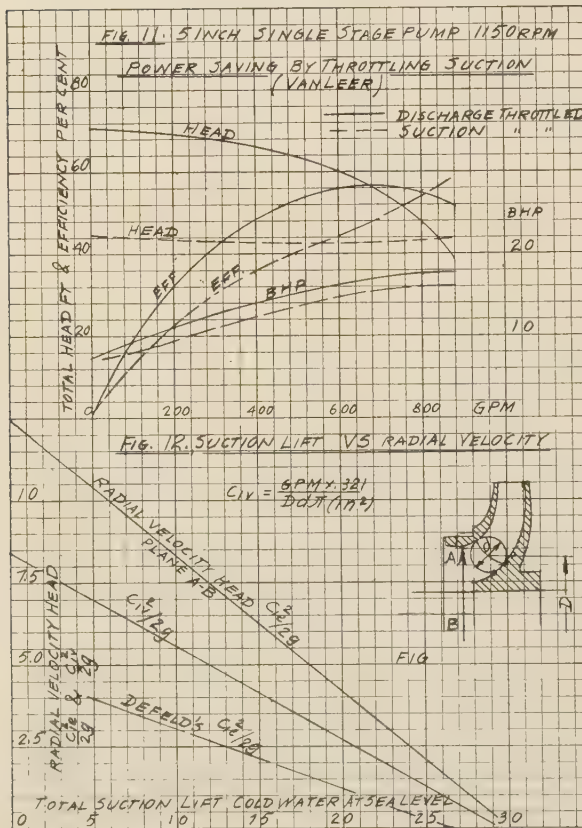 FIG. 11. 5 INCH SINGLE STAGE PUMP 1150 RPM
POWER SAVING BY THROTTLING SUCTION
(VANLEER)
DISCHARGE THROTTLED
SUCTION " "
TOTAL HEAD FT & EFFICIENCY PER CENT
80
60
40
20
0
HEAD
HEAD
EFF
EFF.
BHP
BHP
20
10
200
400
600
800
GPM
FIG. 12. SUCTION LIFT VS RADIAL VELOCITY
C1v = GPM x .321 / D d π (in²)
RADIAL VELOCITY HEAD C1e²/2g
PLANE A-B
C1v²/2g
DEFELD'S C1e²/2g
RADIAL VELOCITY HEAD
C1e²/2g & C1v²/2g
10
7.5
5.0
2.5
0
5
10
15
20
25
30
TOTAL SUCTION LIFT COLD WATER AT SEA LEVEL
A
B
d
D
FIG